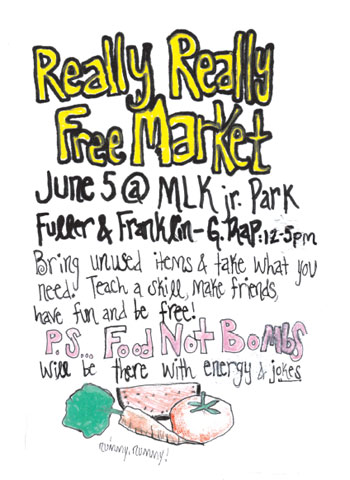 Really Really
Free Market
June 5 @ MLK jr. Park
Fuller & Franklin - G. Rap: 12-5pm
Bring unused items & take what you
need. Teach a skill, make friends,
have fun and be free!
P.S... Food Not Bombs
will be there with energy & jokes
nummy. nummy!